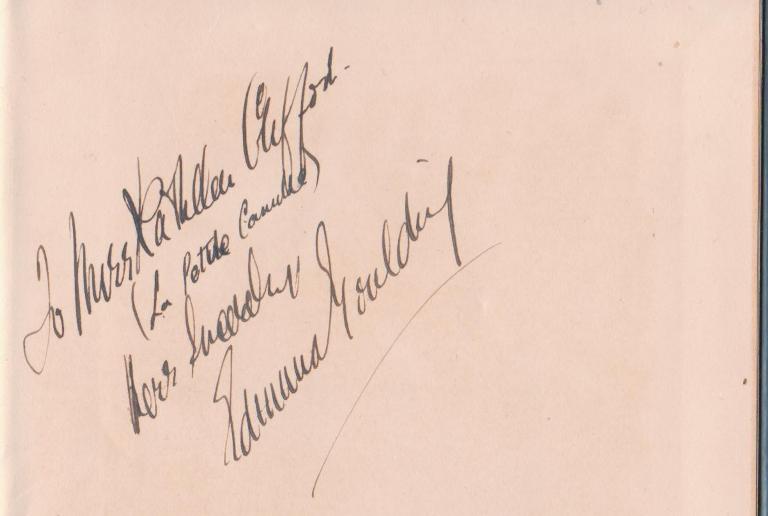 To Miss Kathleen Clifford.
(La Petite Camille)
Herr
Edmund Goulding